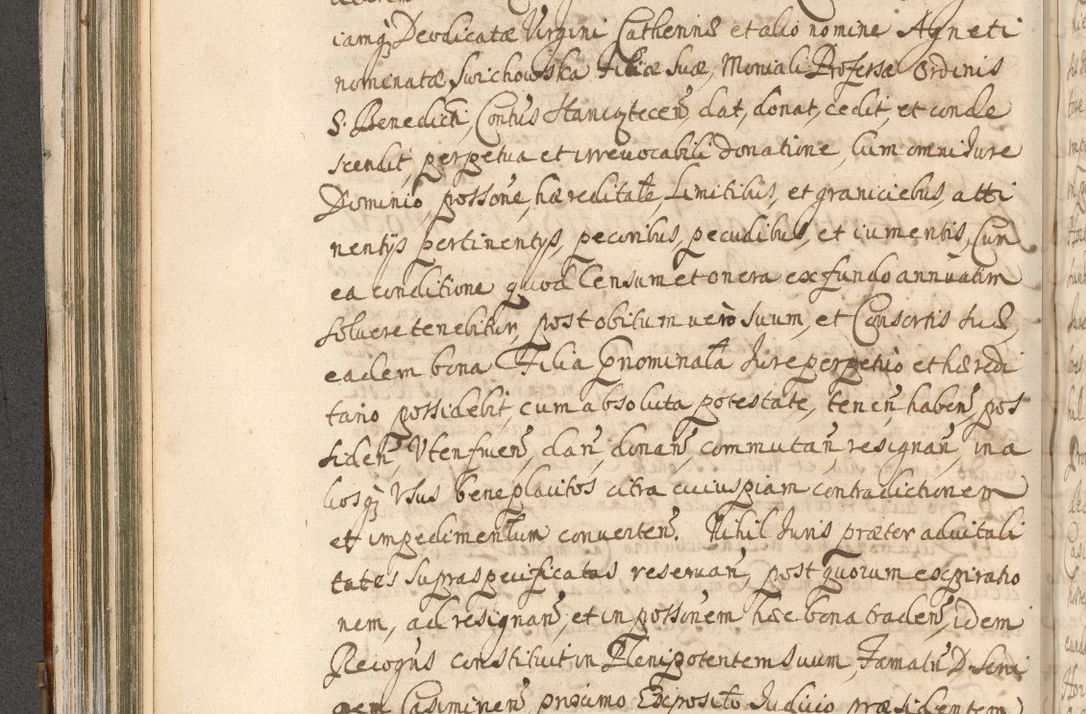 iamq Deodicatæ Virgini Cathennæ et alio nomine Agneti
nominatæ Swichowska Filiæ Suæ, Moniali Professæ Ordinis
S. Benedicti, Contûs Staniąteceñ, dat, donat, cedit, et conde
scendit, perpetua et irrevocabili donatione, cum omni Jure
Dominio, possone, hæreditate, Limitibus, et graniciebus, atti
nentijs pertinentijs, pecoribus, pecudibus, et iumentis, Cum
ea conditione quod Censum et onera ex fundo annuatim
solvere tenebitur, post obitum verò suum, et Consortis suæ,
eadem bona Filia Prænominata Jure perpetuò et hæredi
tario possidebit, cum absoluta potestate, teneñ, habeñ, pos
sideñ, Utenfrueñ, dañ, donañ, commutañ, resignañ, in a
liosq Usus beneplacitos citra cuiuspiam contradictionem
et impedimentum converteñ. Nihil Juris præter advitali
tates supraspecificatas reservañ, post quorum expiratio
nem, ad resignañ, et in possonem hæc bona tradeñ, idem
Recogñs constituit in Plenipotentem suum, Famatũ D. Scri
bem Casimireñ, proximo Exposito Judicio præsidentem